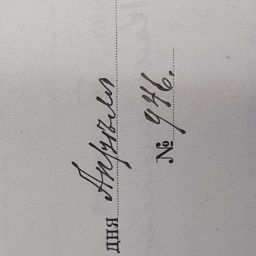 дня Апрѣля
№ 946.